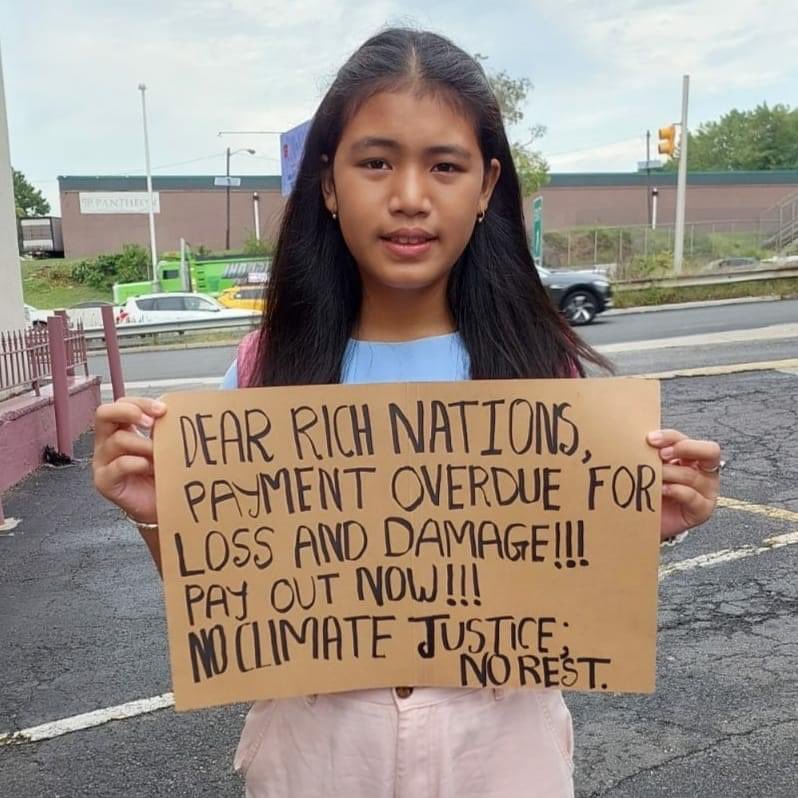 PANTHEON
DEAR RICH NATIONS,
PAYMENT OVERDUE FOR
LOSS AND DAMAGE!!!
PAY OUT NOW!!!
NO CLIMATE JUSTICE;
NO REST.